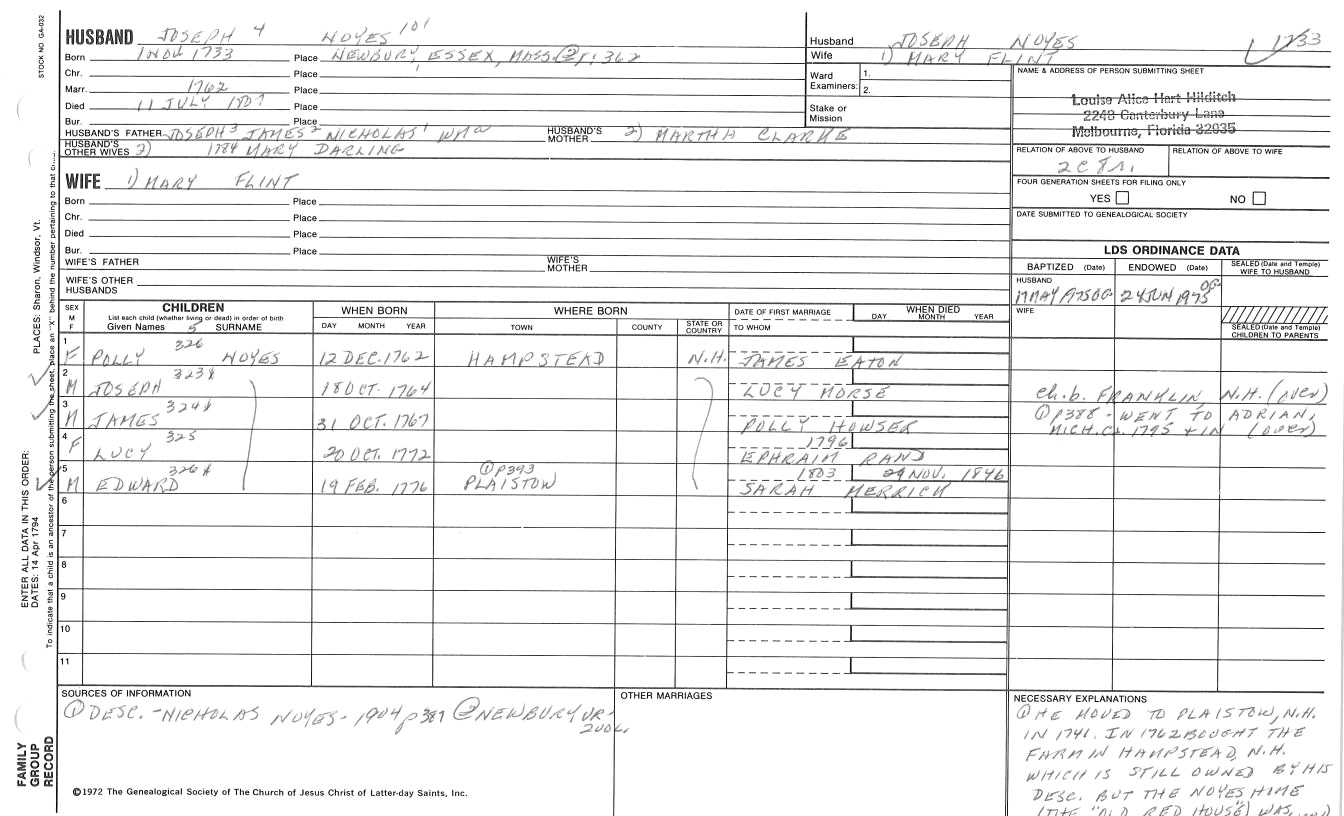 STOCK NO. GA-032
HUSBAND JOSEPH 4 NOYES 101
Born 1 NOV 1733 Place NEWBURY, ESSEX, MASS. ② P. 362
Chr. Place
Marr. 1762 Place
Died 11 JULY 1807 Place
Bur. Place
HUSBAND'S FATHER JOSEPH 3 JAMES 2 NICHOLAS 1 WM HUSBAND'S MOTHER 2) MARTHA CLARKE
HUSBAND'S OTHER WIVES 2) 1784 MARY DARLING
WIFE 1) MARY FLINT
Born Place
Chr. Place
Died Place
Bur. Place
WIFE'S FATHER WIFE'S MOTHER
WIFE'S OTHER HUSBANDS
Husband JOSEPH NOYES 1733
Wife 1) MARY FLINT
Ward Examiners: 1. 2.
Stake or Mission
NAME & ADDRESS OF PERSON SUBMITTING SHEET
Louise Alice Hart Hilditch
2240 Canterbury Lane
Melbourne, Florida 32935
RELATION OF ABOVE TO HUSBAND RELATION OF ABOVE TO WIFE
2C 8r.
FOUR GENERATION SHEETS FOR FILING ONLY
YES NO
DATE SUBMITTED TO GENEALOGICAL SOCIETY
LDS ORDINANCE DATA
BAPTIZED (Date) ENDOWED (Date) SEALED (Date and Temple) WIFE TO HUSBAND
HUSBAND
MAY 1975 OG 24 JUN 1975 OG
WIFE
SEALED (Date and Temple) CHILDREN TO PARENTS
SEX M F CHILDREN WHEN BORN WHERE BORN DATE OF FIRST MARRIAGE WHEN DIED
List each child (whether living or dead) in order of birth
Given Names 5 SURNAME DAY MONTH YEAR TOWN COUNTY STATE OR COUNTRY TO WHOM DAY MONTH YEAR
1 F POLLY 326 NOYES 12 DEC. 1762 HAMPSTEAD N.H. JAMES EATON
2 M JOSEPH 323 18 OCT. 1764 LUCY MORSE ch. b. FRANKLIN, N.H. (over)
3 M JAMES 324 31 OCT. 1767 POLLY HOWSER ① P388 - WENT TO ADRIAN, MICH. Ca. 1795 + IN (over)
4 F LUCY 325 20 OCT. 1772 1796 EPHRAIM RAND
5 M EDWARD 326 19 FEB. 1776 ① P393 PLAISTOW 1803 29 NOV. 1846 SARAH MERRICH
6
7
8
9
10
11
SOURCES OF INFORMATION
① DESC. - NICHOLAS NOYES - 1904 p387 ② NEWBURY VR - 2VOL.
OTHER MARRIAGES
NECESSARY EXPLANATIONS
① HE MOVED TO PLAISTOW, N.H.
IN 1741. IN 1762 BOUGHT THE
FARM IN HAMPSTEAD, N.H.
WHICH IS STILL OWNED BY HIS
DESC. BUT THE NOYES HOME
(THE "OLD RED HOUSE") WAS
©1972 The Genealogical Society of The Church of Jesus Christ of Latter-day Saints, Inc.
FAMILY GROUP RECORD
ENTER ALL DATA IN THIS ORDER:
DATES: 14 Apr 1794
PLACES: Sharon, Windsor, Vt.
To indicate that a child is an ancestor of the person submitting the sheet, place an "X" behind the number pertaining to that